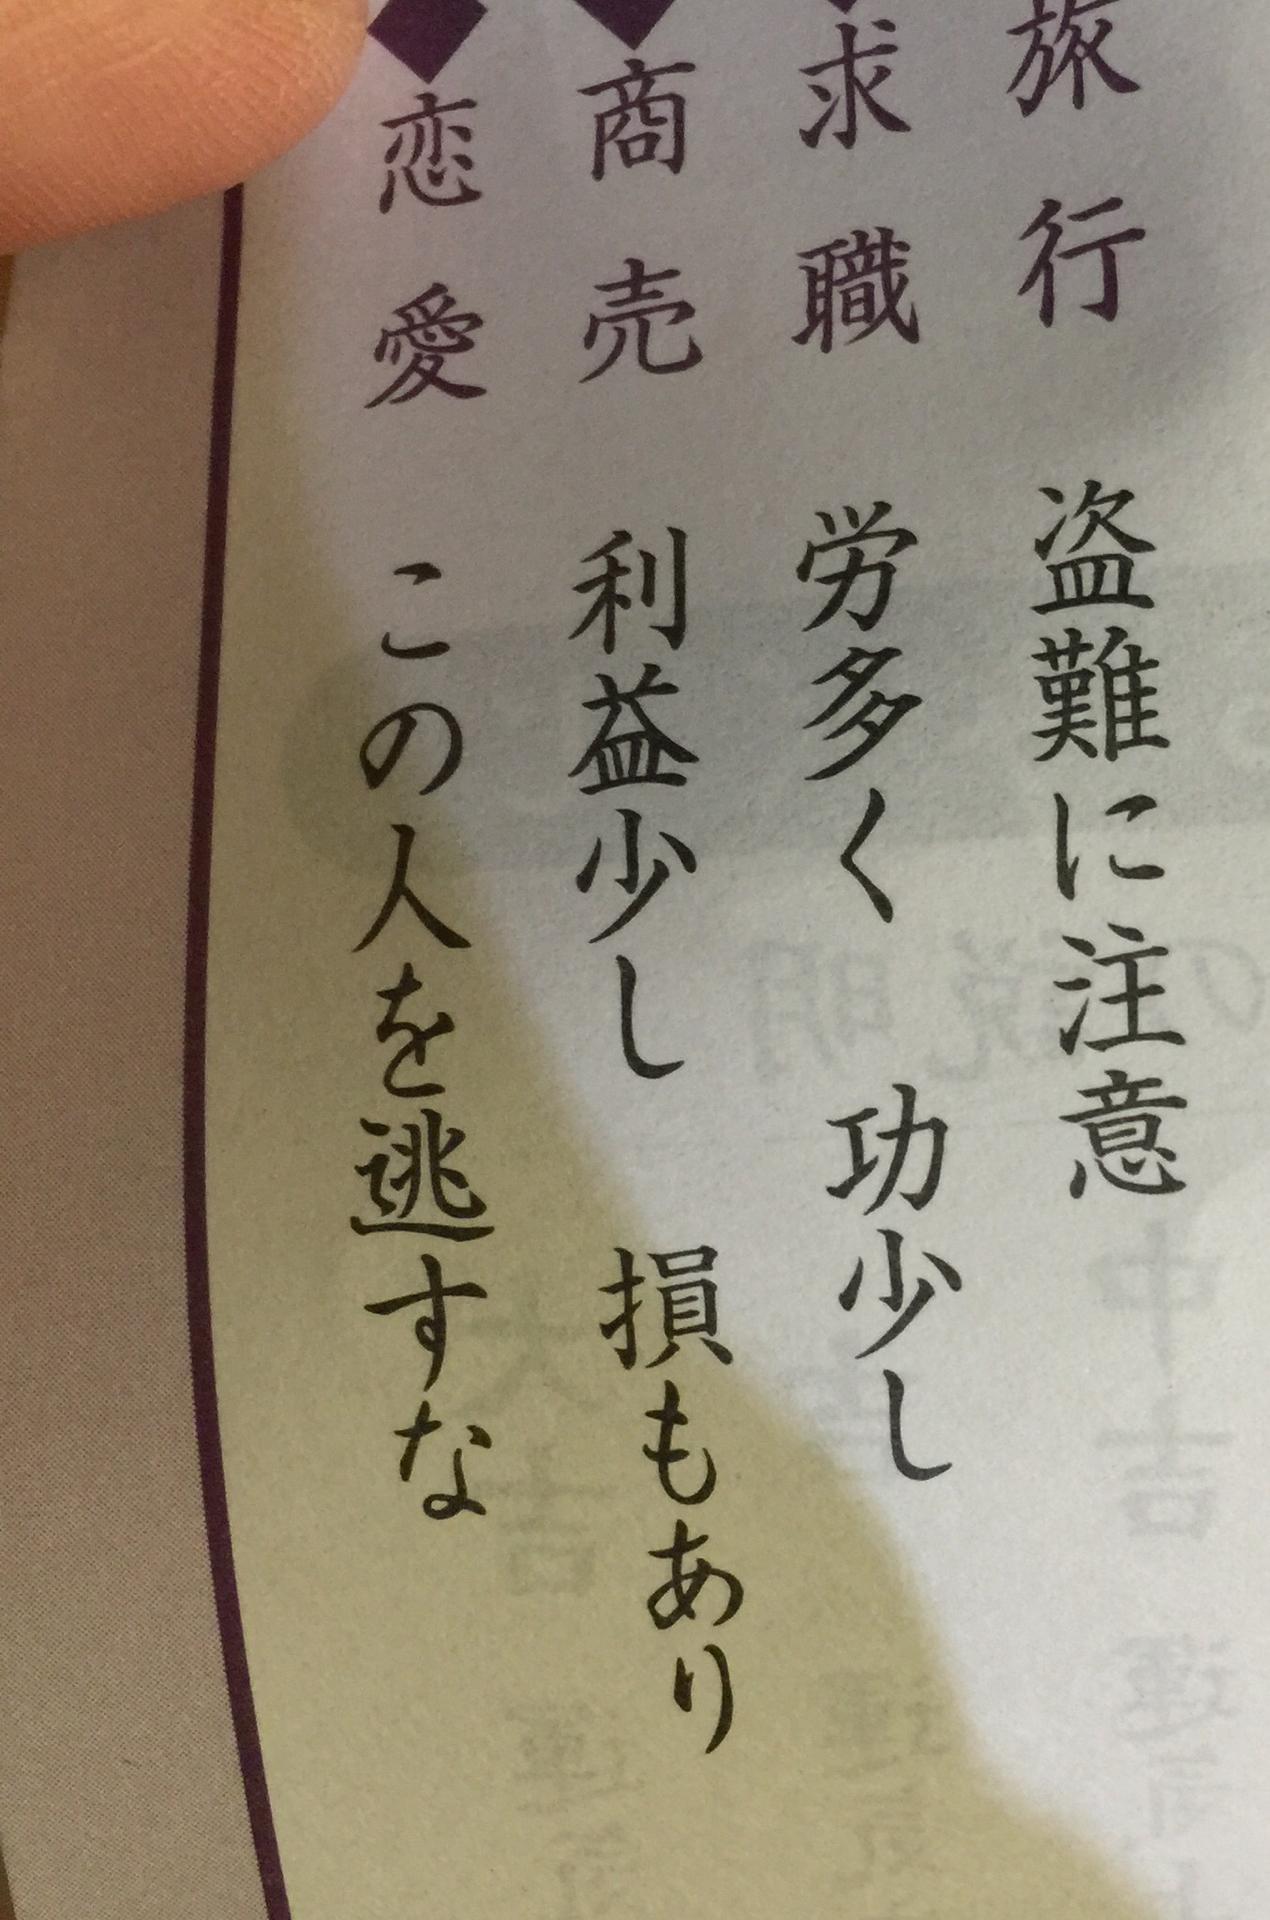 旅行 盗難に注意
求職 労多く 功少し
商売 利益少し 損もあり
恋愛 この人を逃すな